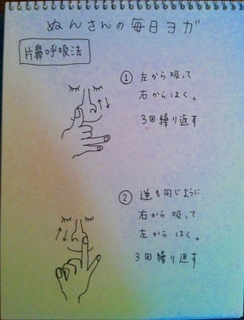 ぬんさんの毎日ヨガ
片鼻呼吸法
① 左から吸って
右からはく。
3回繰り返す
② 逆も同じように
右から吸って
左からはく。
3回繰り返す